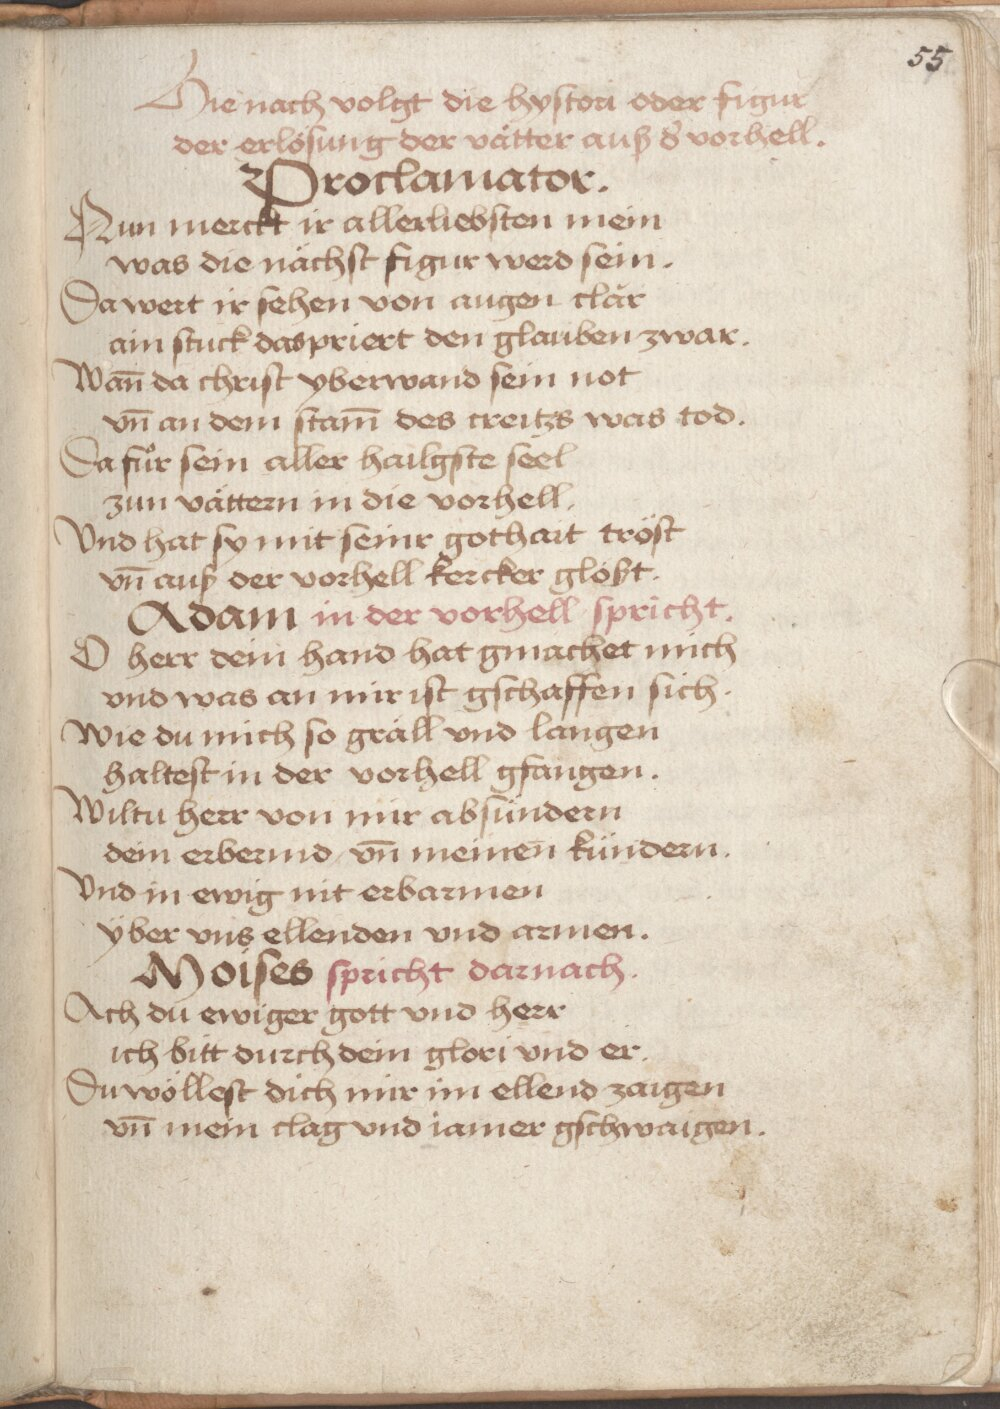 55
Hie nach volgt die hystori oder figur
der erlösung der vätter auß d͛ vorhell.
Proclamator.
Nun merckt ir allerliebsten mein
was die nächst figur werd sein.
Da wert ir sehen von augen clär
ain stuck das priert den glauben zwar.
Wan̄ da christ yberwand sein not
vn̄ an dem stam̄ des creitzs was tod.
Da fuͦr sein aller hailgste seel
zun vättern in die vorhell.
Vnd hat sy mit seinr gothait tröst
vn̄ auß der vorhell kercker glößt.
Adam in der vorhell spricht.
O herr dein hand hat gmachet mich
vnd was an mir ist gschaffen sich.
Wie du mich so gräll vnd langen
haltest in der vorhell gfangen.
Wiltu herr von mir absündern
dein erbermd vn̄ meinen kündern.
Vnd in ewig nit erbarmen
ÿber vns ellenden vnd armen.
Moises spricht darnach.
Ach du ewiger gott vnd herr
ich bitt durch dein glori vnd er.
Du wöllest dich mir im ellend zaigen
vn̄ mein clag vnd iamer gschwaigen.